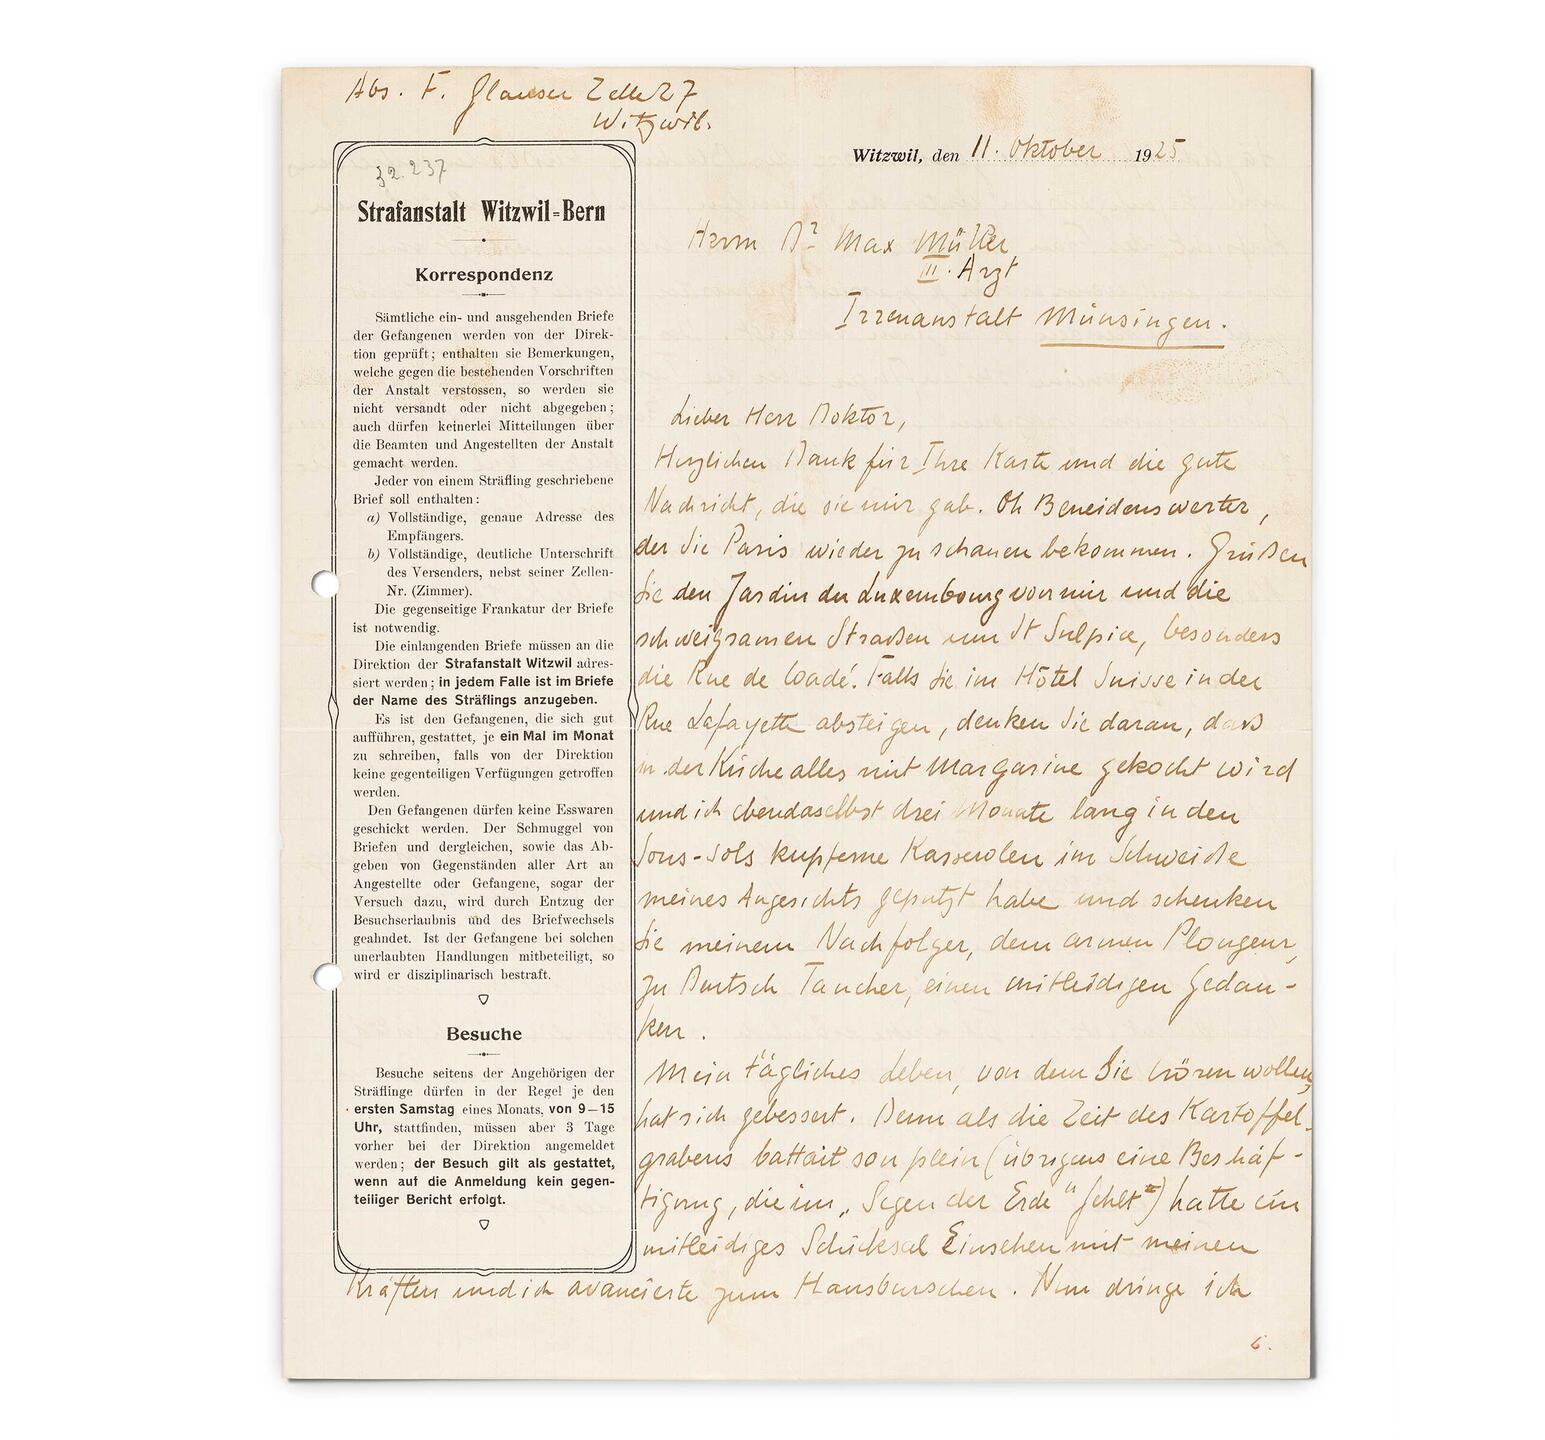 Abs. F. Glauser Zelle 27
Witzwil.
32.237
Strafanstalt Witzwil=Bern
Korrespondenz
Sämtliche ein- und ausgehenden Briefe
der Gefangenen werden von der Direk-
tion geprüft; enthalten sie Bemerkungen,
welche gegen die bestehenden Vorschriften
der Anstalt verstossen, so werden sie
nicht versandt oder nicht abgegeben;
auch dürfen keinerlei Mitteilungen über
die Beamten und Angestellten der Anstalt
gemacht werden.
Jeder von einem Sträfling geschriebene
Brief soll enthalten:
a) Vollständige, genaue Adresse des
Empfängers.
b) Vollständige, deutliche Unterschrift
des Versenders, nebst seiner Zellen-
Nr. (Zimmer).
Die gegenseitige Frankatur der Briefe
ist notwendig.
Die einlangenden Briefe müssen an die
Direktion der Strafanstalt Witzwil adres-
siert werden; in jedem Falle ist im Briefe
der Name des Sträflings anzugeben.
Es ist den Gefangenen, die sich gut
aufführen, gestattet, je ein Mal im Monat
zu schreiben, falls von der Direktion
keine gegenteiligen Verfügungen getroffen
werden.
Den Gefangenen dürfen keine Esswaren
geschickt werden. Der Schmuggel von
Briefen und dergleichen, sowie das Ab-
geben von Gegenständen aller Art an
Angestellte oder Gefangene, sogar der
Versuch dazu, wird durch Entzug der
Besuchserlaubnis und des Briefwechsels
geahndet. Ist der Gefangene bei solchen
unerlaubten Handlungen mitbeteiligt, so
wird er disziplinarisch bestraft.
Besuche
Besuche seitens der Angehörigen der
Sträflinge dürfen in der Regel je den
ersten Samstag eines Monats, von 9—15
Uhr, stattfinden, müssen aber 3 Tage
vorher bei der Direktion angemeldet
werden; der Besuch gilt als gestattet,
wenn auf die Anmeldung kein gegen-
teiliger Bericht erfolgt.
Witzwil, den 11. Oktober 1925
Herrn Dr Max Müller
III. Arzt
Irrenanstalt Münsingen.
Lieber Herr Doktor,
Herzlichen Dank für Ihre Karte und die gute
Nachricht, die sie mir gab. Oh Beneidenswerter,
der Sie Paris wieder zu schauen bekommen. Grüßen
Sie den Jardin du Luxembourg von mir und die
schweigsamen Straßen um St Sulpice, besonders
die Rue de Condé. Falls Sie im Hôtel Suisse in der
Rue Lafayette absteigen, denken Sie daran, dass
in der Küche alles mit Margarine gekocht wird
und ich ebendaselbst drei Monate lang in den
Sous-sols kupferne Kasserolen im Schweiße
meines Angesichts geputzt habe und schenken
Sie meinem Nachfolger, dem armen Plongeur,
zu Deutsch Taucher, einen mitleidigen Gedan-
ken.
Mein tägliches Leben, von dem Sie hören wollen,
hat sich gebessert. Denn als die Zeit des Kartoffel-
grabens battait son plein (übrigens eine Beschäf-
tigung, die im „Segen der Erde" fehlt) hatte ein
mitleidiges Schicksal Einsehen mit meinen
Kräften und ich avancierte zum Hausburschen. Nun dringe ich
6.